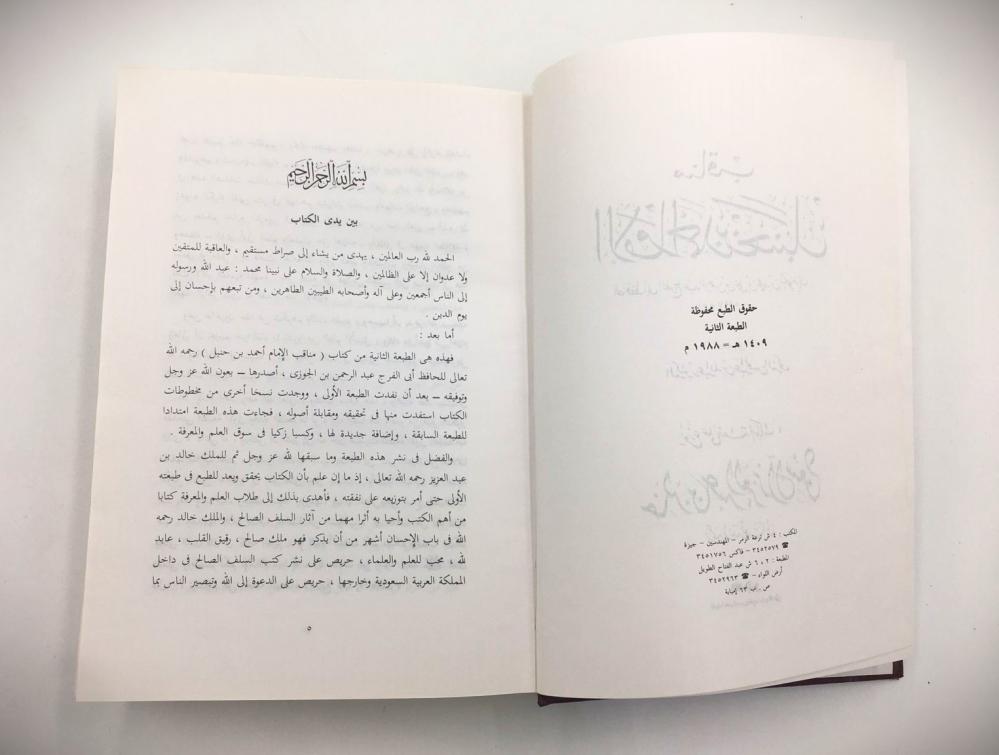 حقوق الطبع محفوظة
الطبعة الثانية
١٤٠٩ هـ = ١٩٨٨ م
المكتب : ٤ ش ترعة الزمر – المهندسين – جيزة
☎ ٣٤٥٢٥٧٩ – فاكس ٣٤٥١٧٥٦
المطبعة : ٢ ، ٦ ش عبد الفتاح الطويل
أرض اللواء – ☎ ٣٤٥٢٩٦٣
ص . ب ٦٣ إمبابة
بسم الله الرحمن الرحيم
بين يدى الكتاب
الحمد لله رب العالمين ، يهدى من يشاء إلى صراط مستقيم ، والعاقبة للمتقين
ولا عدوان إلا على الظالمين ، والصلاة والسلام على نبينا محمد : عبد الله ورسوله
إلى الناس أجمعين وعلى آله وأصحابه الطيبين الطاهرين ، ومن تبعهم بإحسان إلى
يوم الدين .
أما بعد :
فهذه هى الطبعة الثانية من كتاب ( مناقب الإمام أحمد بن حنبل ) رحمه الله
تعالى للحافظ أبى الفرج عبد الرحمن بن الجوزى ، أصدرها – بعون الله عز وجل
وتوفيقه – بعد أن نفدت الطبعة الأولى ، ووجدت نسخا أخرى من مخطوطات
الكتاب استفدت منها فى تحقيقه ومقابلة أصوله ، فجاءت هذه الطبعة امتدادا
للطبعة السابقة ، وإضافة جديدة لها ، وكسبا زكيا فى سوق العلم والمعرفة .
والفضل فى نشر هذه الطبعة وما سبقها لله عز وجل ثم للملك خالد بن
عبد العزيز رحمه الله تعالى ، إذ ما إن علم بأن الكتاب يحقق ويعد للطبع فى طبعته
الأولى حتى أمر بتوزيعه على نفقته ، فأهدى بذلك إلى طلاب العلم والمعرفة كتابا
من أهم الكتب وأحيا به أثرا مهما من آثار السلف الصالح ، والملك خالد رحمه
الله فى باب الإحسان أشهر من أن يذكر فهو ملك صالح ، رقيق القلب ، عابد
لله ، محب للعلم والعلماء ، حريص على نشر كتب السلف الصالح فى داخل
المملكة العربية السعودية وخارجها ، حريص على الدعوة إلى الله وتبصير الناس بما
٥